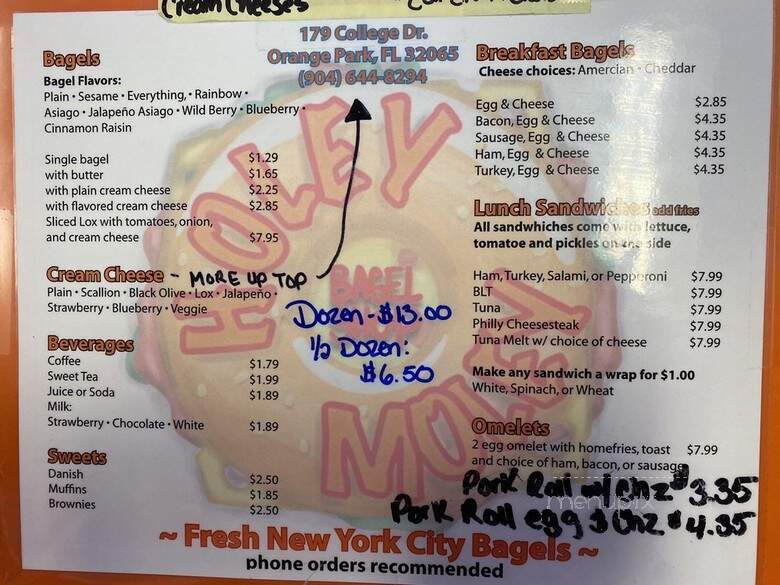 Cream Cheeses
179 College Dr.
Orange Park, FL 32065
(904) 644-8294
Bagels
Bagel Flavors:
Plain • Sesame • Everything, • Rainbow •
Asiago • Jalapeño Asiago • Wild Berry • Blueberry •
Cinnamon Raisin
Single bagel $1.29
with butter $1.65
with plain cream cheese $2.25
with flavored cream cheese $2.85
Sliced Lox with tomatoes, onion,
and cream cheese $7.95
Cream Cheese - MORE UP TOP
Plain • Scallion • Black Olive • Lox • Jalapeño •
Strawberry • Blueberry • Veggie
Beverages
Coffee $1.79
Sweet Tea $1.99
Juice or Soda $1.89
Milk:
Strawberry • Chocolate • White $1.89
Sweets
Danish $2.50
Muffins $1.85
Brownies $2.50
HOLEY
BAGEL
MOLEY
Dozen - $13.00
1/2 Dozen:
$6.50
Breakfast Bagels
Cheese choices: Amercian • Cheddar
Egg & Cheese $2.85
Bacon, Egg & Cheese $4.35
Sausage, Egg & Cheese $4.35
Ham, Egg & Cheese $4.35
Turkey, Egg & Cheese $4.35
Lunch Sandwiches add fries
All sandwhiches come with lettuce,
tomatoe and pickles on the side
Ham, Turkey, Salami, or Pepperoni $7.99
BLT $7.99
Tuna $7.99
Philly Cheesesteak $7.99
Tuna Melt w/ choice of cheese $7.99
Make any sandwich a wrap for $1.00
White, Spinach, or Wheat
Omelets
2 egg omelet with homefries, toast $7.99
and choice of ham, bacon, or sausage
Pork Roll w/ chz $3.35
Pork Roll egg & chz $4.35
menupix
~ Fresh New York City Bagels ~
phone orders recommended